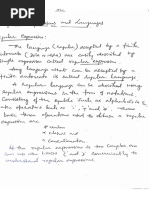 and Languages
Regular Expression:
The language (regular) accepted by a finite
automata are easily described by
simple expression called regular expression.
The language that can be accepted by a
finite automata is called regular language
A regular language can be described using
regular expressions in the form of notations
consisting of the symbols such as alphabets in Σ
the operators such as '.', '+', '*', where
three operations used to obtain a regular
Union
Concatenation
If the regular expression is too complex, we
can use braces ( and ) conveniently to
understand regular expression